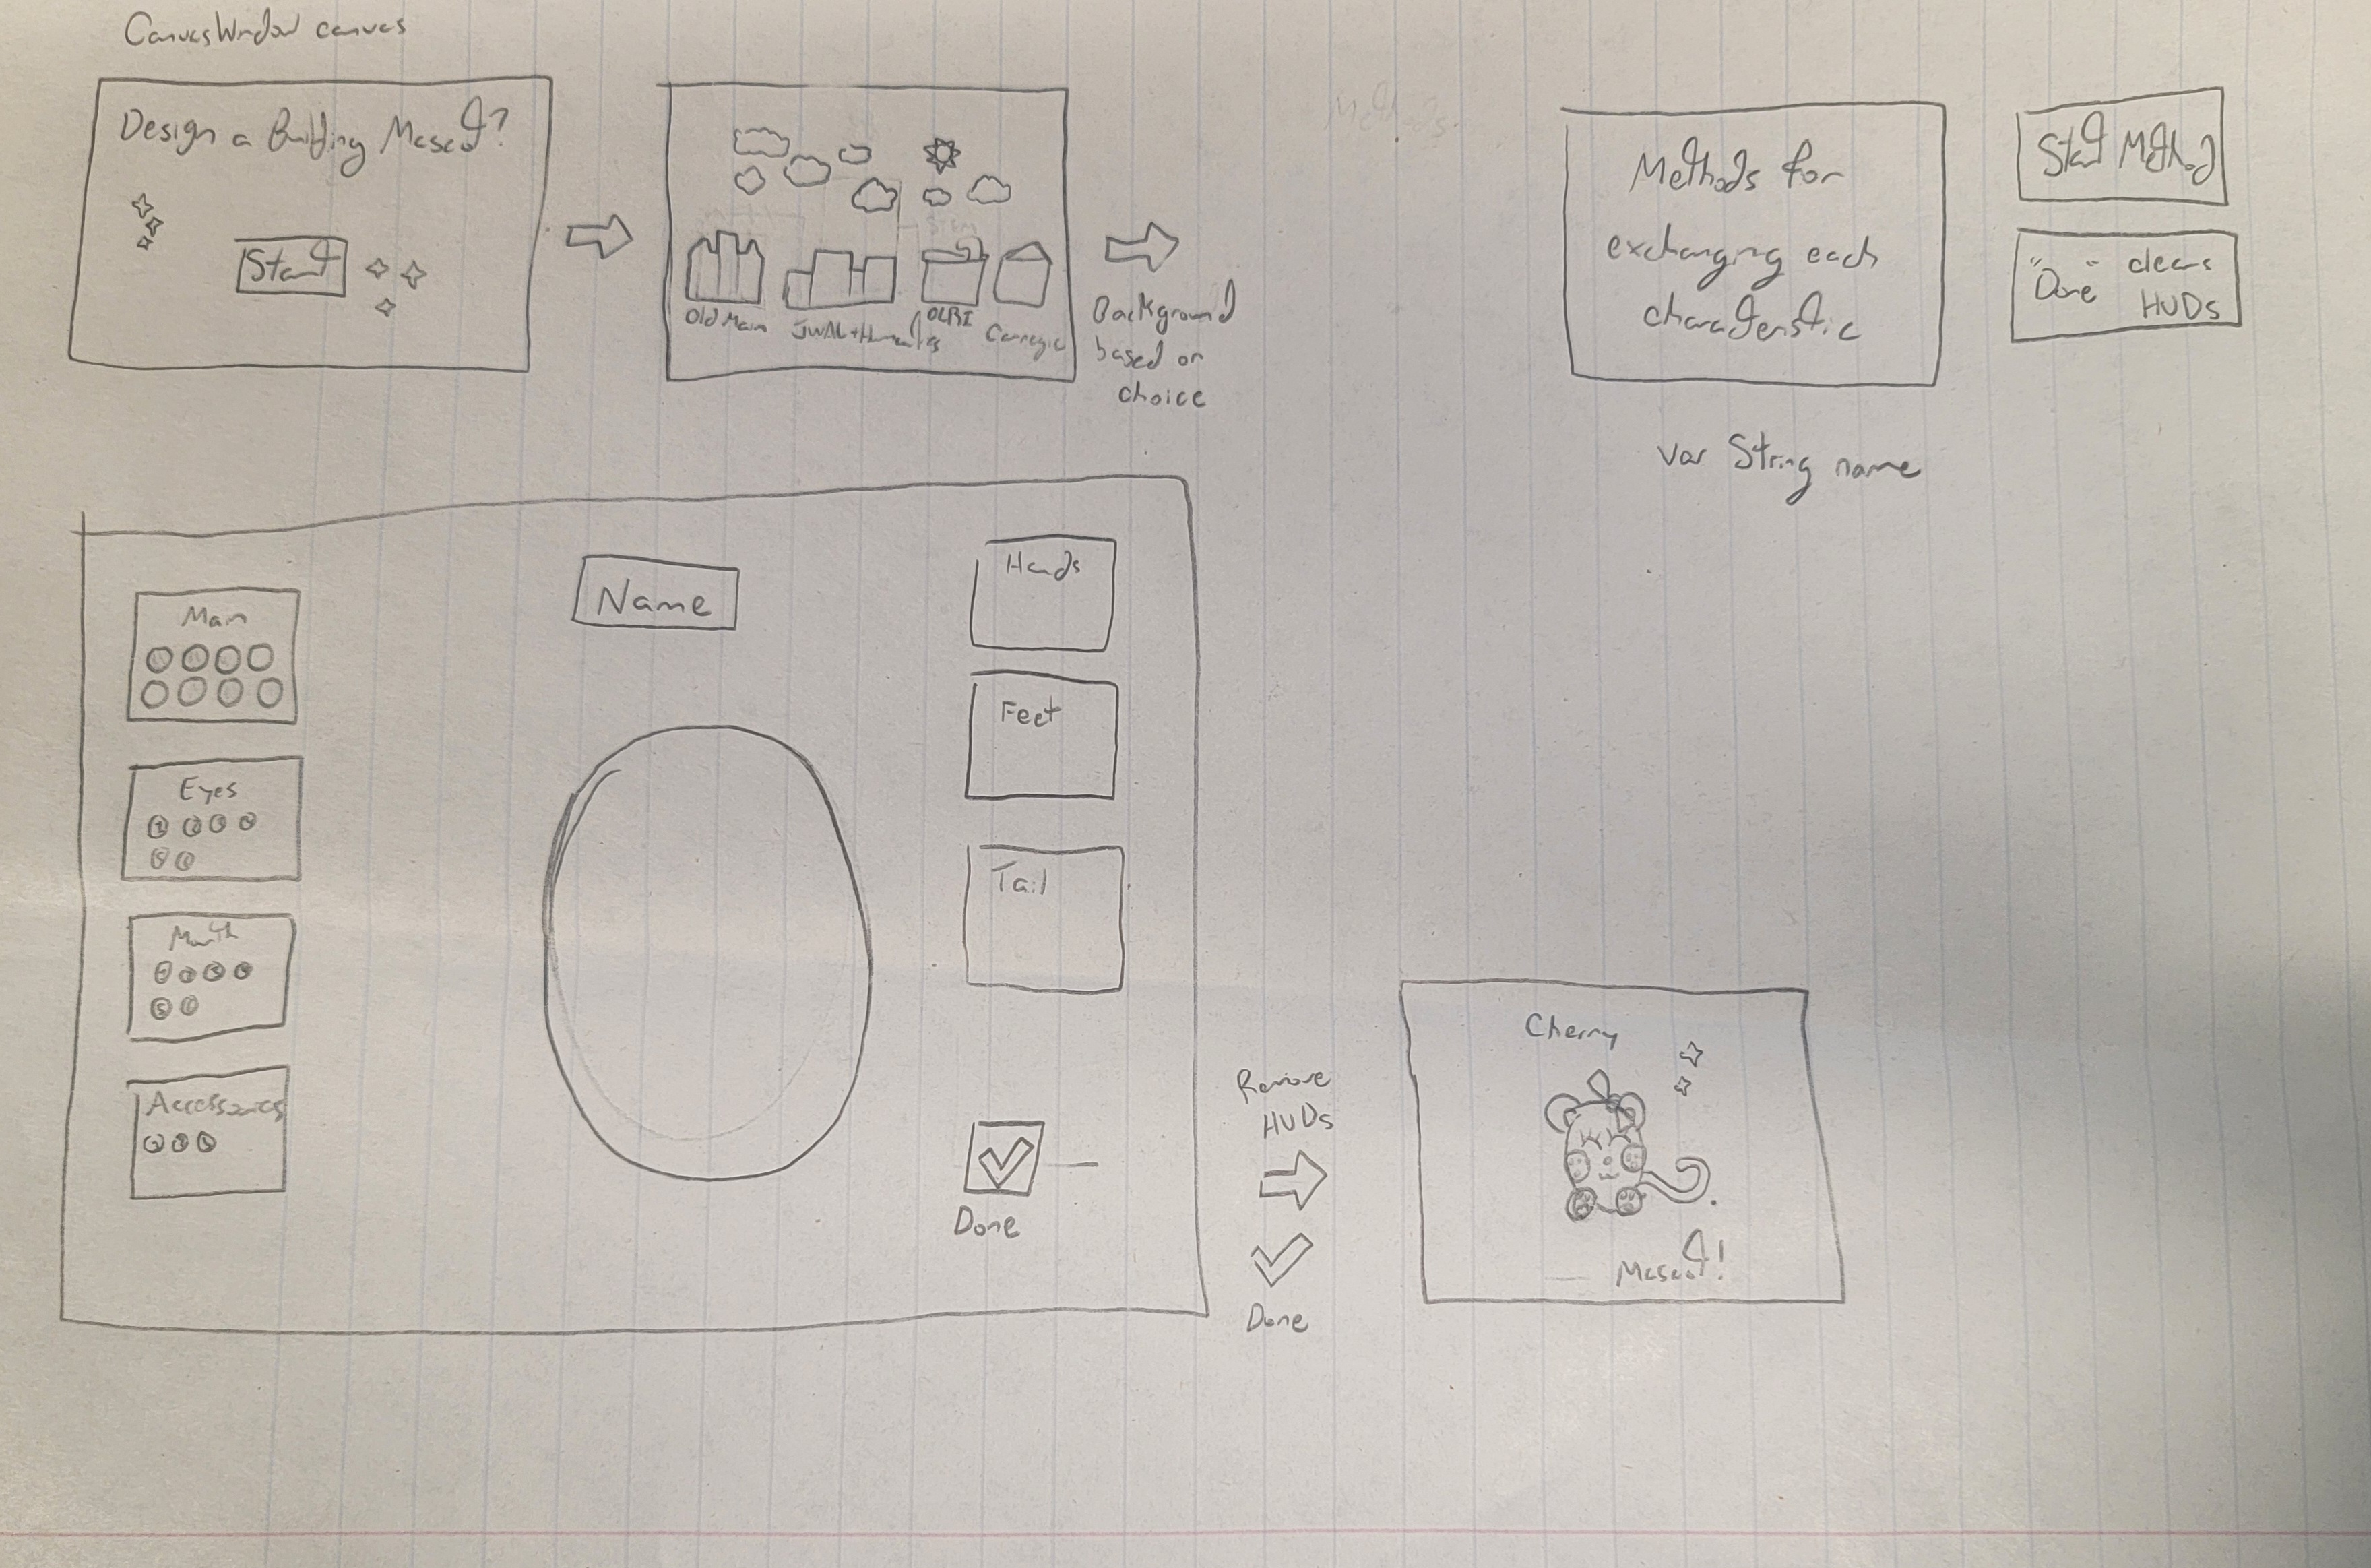 CanvasWindow canvas
Design a Building Mascot?
Start
Old Main
JWALL + Humanities
OLRI
Carnegie
Background
based on
choice
Methods
Methods for
exchanging each
characteristic
Start Method
"Done" clears
HUDs
var String name
Main
Eyes
1 2 3 4
5 6
Mouth
1 2 3 4
5 6
Accessories
1 2 3
Name
Hands
Feet
Tail
Done
Remove
HUDs
Done
Cherry
Mascot!